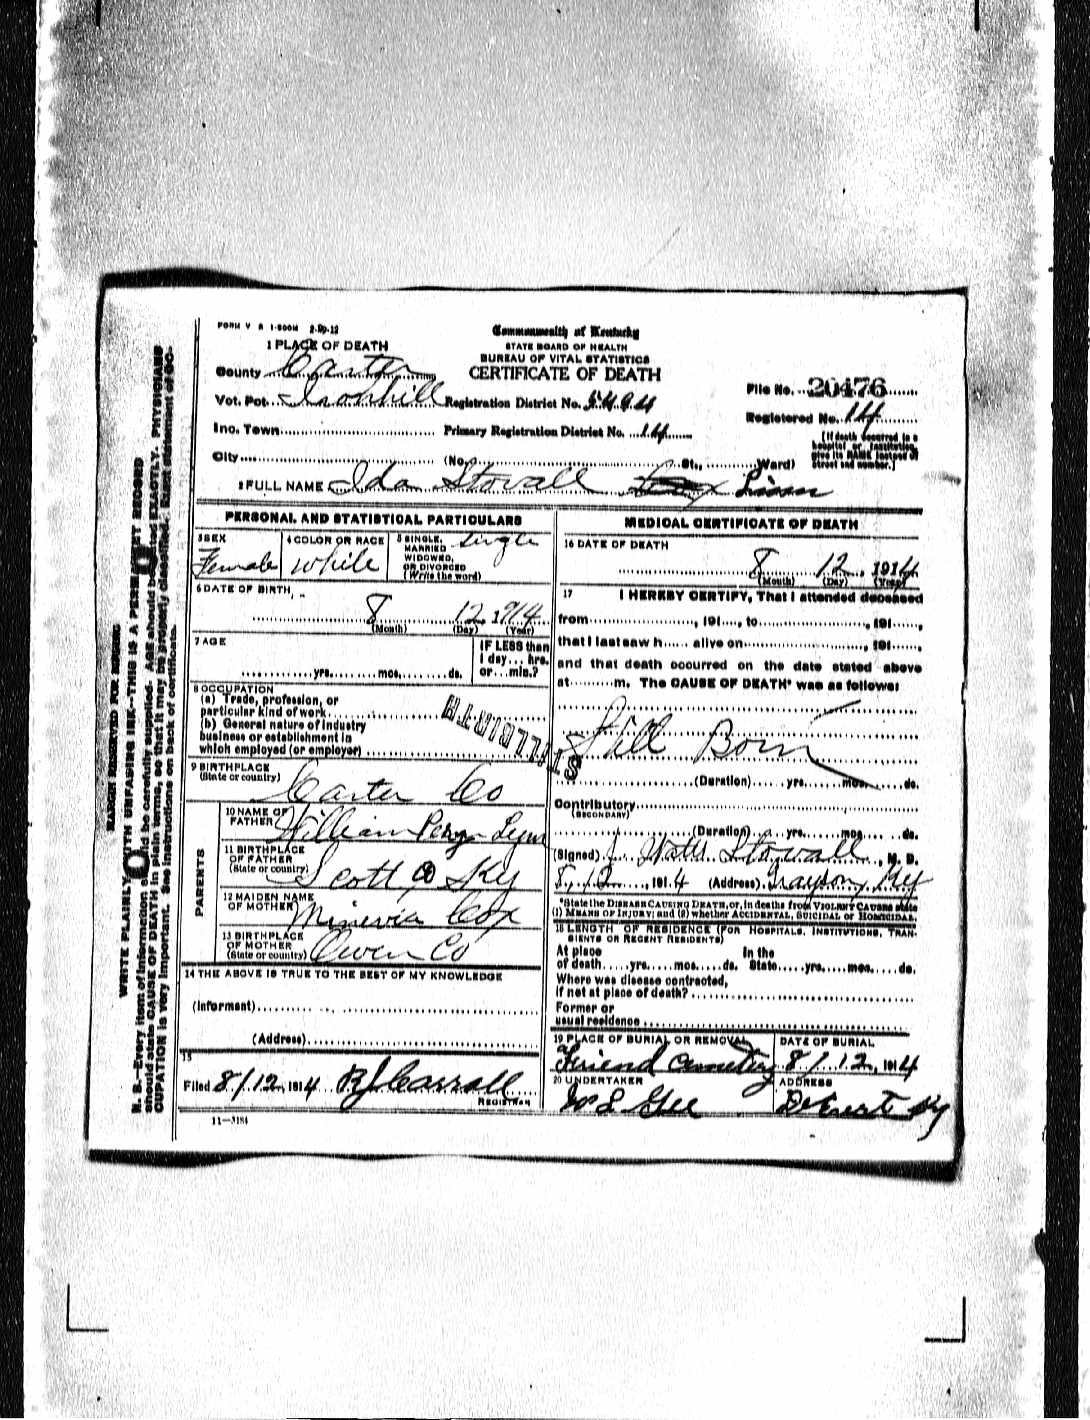 FORM V S 1-500M 2-29-12
Commonwealth of Kentucky
STATE BOARD OF HEALTH
BUREAU OF VITAL STATISTICS
CERTIFICATE OF DEATH
1 PLACE OF DEATH
County Carter
Vot. Pct. Ironhill Registration District No. 5494
Inc. Town Primary Registration District No. 14
City (No. St., Ward)
File No. 20476
Registered No. 14
[If death occurred in a
hospital or institution,
give its NAME instead of
street and number.]
2 FULL NAME Ida Stovall Linn
PERSONAL AND STATISTICAL PARTICULARS
3 SEX
Female
4 COLOR OR RACE
White
5 SINGLE,
MARRIED
WIDOWED,
OR DIVORCED
(Write the word)
Single
6 DATE OF BIRTH
8 12 1914
(Month) (Day) (Year)
7 AGE
yrs. mos. ds.
IF LESS than
1 day... hrs.
or... min.?
8 OCCUPATION
(a) Trade, profession, or
particular kind of work
(b) General nature of industry
business or establishment in
which employed (or employer)
STILLBIRTH
9 BIRTHPLACE
(State or country)
Carter Co
PARENTS
10 NAME OF
FATHER William Perry Lynn
11 BIRTHPLACE
OF FATHER
(State or country) Scott Co Ky
12 MAIDEN NAME
OF MOTHER Minervia Cox
13 BIRTHPLACE
OF MOTHER
(State or country) Owen Co
14 THE ABOVE IS TRUE TO THE BEST OF MY KNOWLEDGE
(Informant)
(Address)
15
Filed 8/12, 1914 RJ Carroll
REGISTRAR
11—3184
MEDICAL CERTIFICATE OF DEATH
16 DATE OF DEATH
8 12, 1914
(Month) (Day) (Year)
17 I HEREBY CERTIFY, That I attended deceased
from , 191 , to , 191 ,
that I last saw h alive on , 191 ,
and that death occurred on the date stated above
at m. The CAUSE OF DEATH* was as follows:
Still Born
(Duration) yrs. mos. ds.
Contributory
(SECONDARY)
(Duration) yrs. mos. ds.
(Signed) J Watts Stovall, M. D.
8, 12, 1914 (Address) Grayson, Ky
*State the DISEASE CAUSING DEATH, or, in deaths from VIOLENT CAUSES state
(1) MEANS OF INJURY; and (2) whether ACCIDENTAL, SUICIDAL OR HOMICIDAL.
18 LENGTH OF RESIDENCE (FOR HOSPITALS, INSTITUTIONS, TRAN-
SIENTS OR RECENT RESIDENTS)
At place In the
of death yrs. mos. ds. State yrs. mos. ds.
Where was disease contracted,
if not at place of death?
Former or
usual residence
19 PLACE OF BURIAL OR REMOVAL
Friend Cemetery
DATE OF BURIAL
8/12, 1914
20 UNDERTAKER
W S Gee
ADDRESS
Ky
MARGIN RESERVED FOR BINDING
WRITE PLAINLY WITH UNFADING INK—THIS IS A PERMANENT RECORD
N. B.—Every item of information should be carefully supplied. AGE should be stated EXACTLY. PHYSICIANS
should state CAUSE OF DEATH in plain terms, so that it may be properly classified. Exact statement of OC-
CUPATION is very important. See instructions on back of certificate.